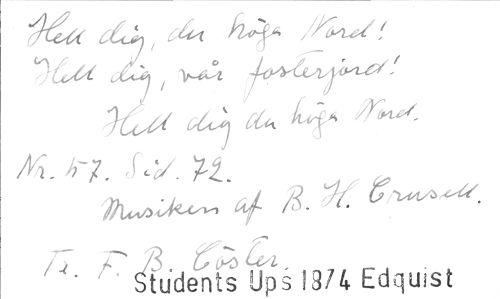 Hell dig, du höga Nord!
Hell dig, vår fosterjord!
Hell dig du höga Nord.
Nr. 57. Sid. 72.
Musiken af B. H. Crusell.
Tr. F. B. Cöster.
Students Ups 1874 Edquist